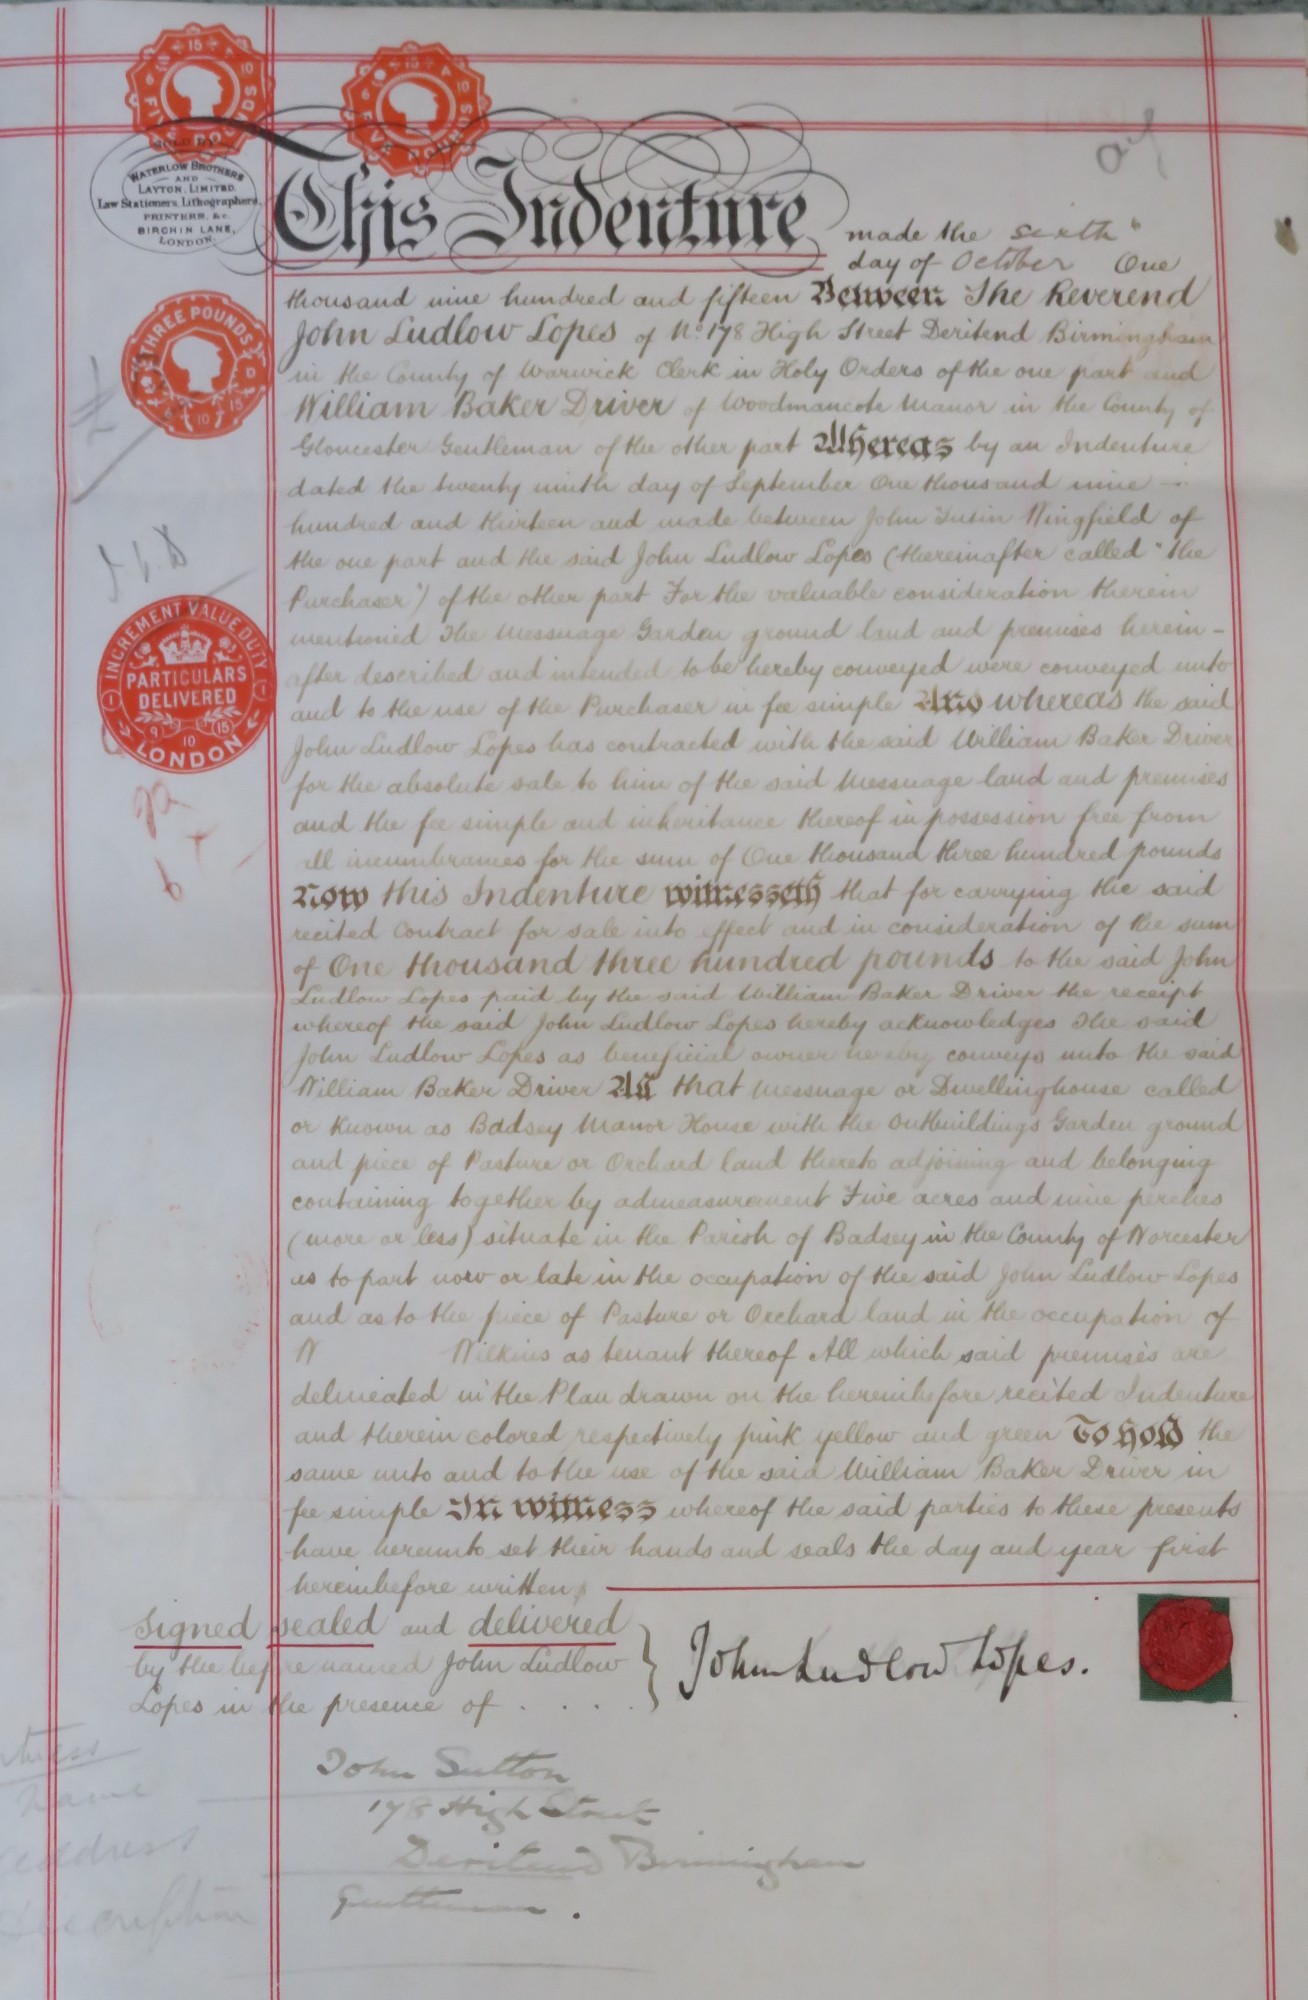 FIVE POUNDS
6 15 10
FIVE POUNDS
6 15 10
SOLD BY
WATERLOW BROTHERS
AND
LAYTON, LIMITED.
Law Stationers, Lithographers,
PRINTERS, &c.
BIRCHIN LANE,
LONDON.
This Indenture made the sixth
day of October One
thousand nine hundred and fifteen Between The Reverend
John Ludlow Lopes of No. 178 High Street Deritend Birmingham
in the County of Warwick Clerk in Holy Orders of the one part and
William Baker Driver of Woodmancote Manor in the County of
Gloucester Gentleman of the other part Whereas by an Indenture
dated the twenty ninth day of September One thousand nine
hundred and thirteen and made between John Wingfield of
the one part and the said John Ludlow Lopes (thereinafter called "the
Purchaser") of the other part For the valuable consideration therein
mentioned The Messuage Garden ground land and premises herein-
after described and intended to be hereby conveyed were conveyed unto
and to the use of the Purchaser in fee simple And whereas the said
John Ludlow Lopes has contracted with the said William Baker Driver
for the absolute sale to him of the said Messuage land and premises
and the fee simple and inheritance thereof in possession free from
all incumbrances for the sum of One thousand three hundred pounds
Now this Indenture witnesseth that for carrying the said
recited Contract for sale into effect and in consideration of the sum
of One thousand three hundred pounds to the said John
Ludlow Lopes paid by the said William Baker Driver the receipt
whereof the said John Ludlow Lopes hereby acknowledges The said
John Ludlow Lopes as beneficial owner hereby conveys unto the said
William Baker Driver All that Messuage or Dwellinghouse called
or known as Badsey Manor House with the Outbuildings Garden ground
and piece of Pasture or Orchard land thereto adjoining and belonging
containing together by admeasurement Five acres and nine perches
(more or less) situate in the Parish of Badsey in the County of Worcester
as to part now or late in the occupation of the said John Ludlow Lopes
and as to the piece of Pasture or Orchard land in the occupation of
W Wilkins as tenant thereof All which said premises are
delineated in the Plan drawn on the hereinbefore recited Indenture
and therein colored respectively pink yellow and green To hold the
same unto and to the use of the said William Baker Driver in
fee simple In witness whereof the said parties to these presents
have hereunto set their hands and seals the day and year first
hereinbefore written
THREE POUNDS
6 10 15
INCREMENT VALUE DUTY
PARTICULARS
DELIVERED
9 10 15
LONDON
Signed sealed and delivered
by the before named John Ludlow
Lopes in the presence of . . . .
John Ludlow Lopes.
John Sutton
178 High Street
Deritend Birmingham
Gentleman.
Name
Address
Description